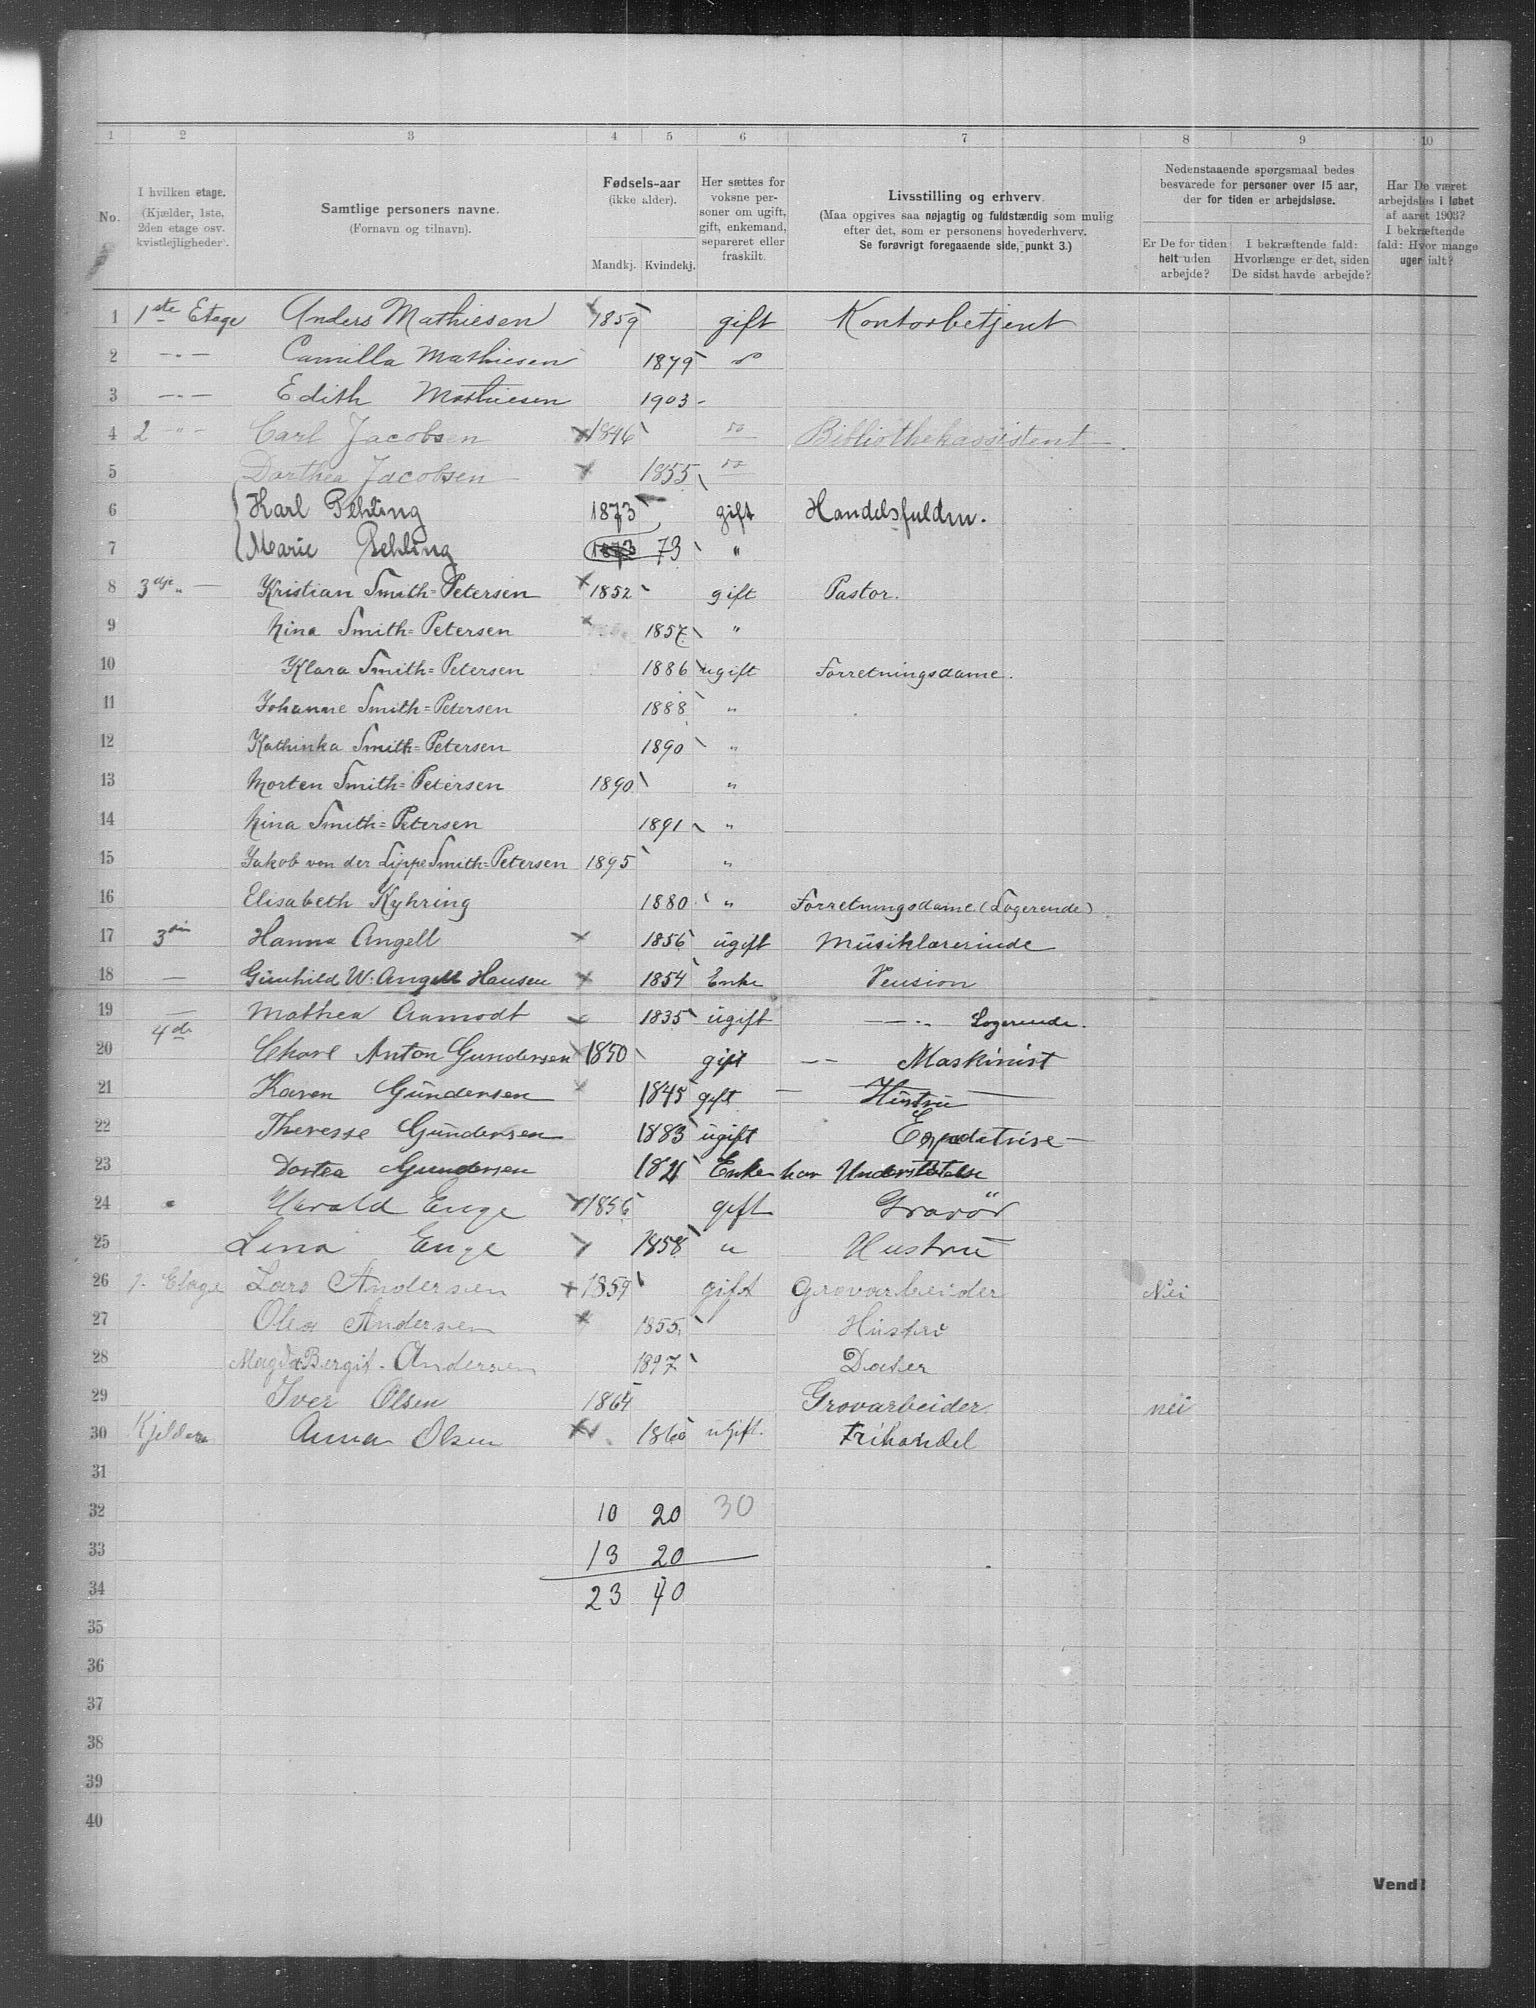 1 2 3 4 5 6 7 8 9 10
No.
I hvilken etage.
(Kjælder, 1ste,
2den etage osv.
kvistlejligheder).
Samtlige personers navne.
(Fornavn og tilnavn).
Fødsels-aar
(ikke alder).
Mandkj. Kvindekj.
Her sættes for
voksne per-
soner om ugift,
gift, enkemand,
separeret eller
fraskilt.
Livsstilling og erhverv.
(Maa opgives saa nøjagtig og fuldstændig som mulig
efter det, som er personens hovederhverv.
Se forøvrigt foregaaende side, punkt 3.)
Nedenstaaende spørgsmaal bedes
besvarede for personer over 15 aar,
der for tiden er arbejdsløse.
Er De for tiden
helt uden
arbejde?
I bekræftende fald:
Hvorlænge er det, siden
De sidst havde arbejde?
Har De været
arbejdsløs i løbet
af aaret 1903?
I bekræftende
fald: Hvor mange
uger ialt?
1 1ste Etage Anders Mathiesen 1859 gift Kontorbetjent
2 —"— Camilla Mathiesen 1879 do
3 —"— Edith Mathiesen 1903
4 2 —"— Carl Jacobsen 1846 do Bibliothekassistent
5 Dorthea Jacobsen 1855 do
6 Karl Pehling 1873 gift Handelsfuldm.
7 Marie Pehling 1873 73 "
8 3dje " — Kristian Smith-Petersen 1852 gift Pastor.
9 Nina Smith-Petersen 1857 "
10 Klara Smith-Petersen 1886 ugift Forretningsdame.
11 Johanne Smith-Petersen 1888 "
12 Kathinka Smith-Petersen 1890 "
13 Morten Smith-Petersen 1890 "
14 Nina Smith-Petersen 1891 "
15 Jakob von der Lippe Smith-Petersen 1895 "
16 Elisabeth Kyhring 1880 " Forretningsdame. (Logerende)
17 3die Hanna Angell 1856 ugift Musiklærerinde
18 — Gunhild W. Angell Hansen 1854 Enke Pension
19 — Mathea Aamodt 1835 ugift —"— Logerende.
20 4de Charl Anton Gundersen 1850 gift —— Maskinist
21 Karen Gundersen 1845 gift — Hustru
22 Theresse Gundersen 1883 ugift Expeditrise
23 Dortea Gundersen 1821 Enke har Understøtelse
24 " Harald Enge 1856 gift Gravør
25 Lina Enge 1858 " Hustru
26 1. Etage Lars Andersen 1859 gift Grovarbeider Nei
27 Olea Andersen 1855 Hustru
28 Magda Bergit. Andersen 1897 Dater
29 Iver Olsen 1864 Grovarbeider. nei
30 Kjelder Anna Olsen 1860 ugift. Frihandel
31
32 10 20 30
33 13 20
34 23 40
35
36
37
38
39
40
Vend!